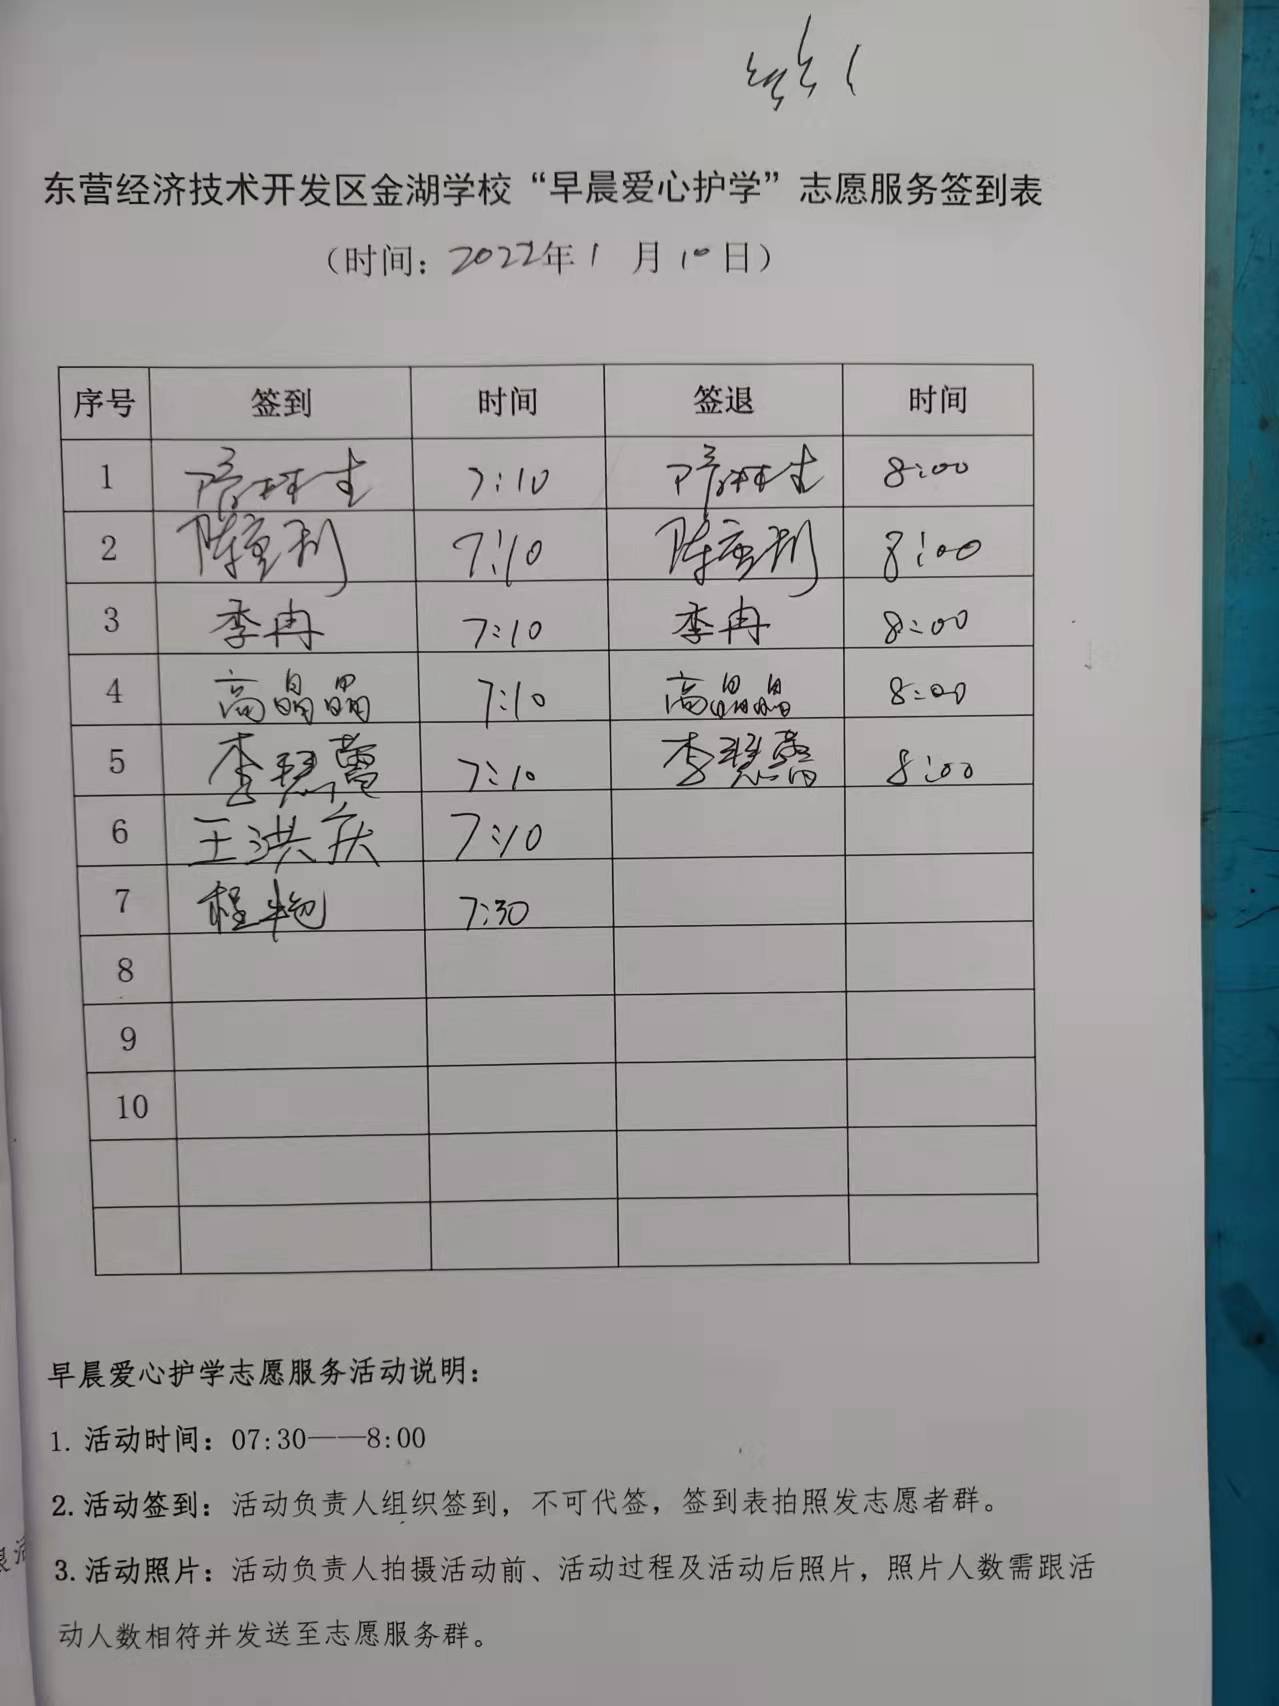 东营经济技术开发区金湖学校“早晨爱心护学”志愿服务签到表
（时间：2022年1月10日）
序号 签到 时间 签退 时间
1 7:10 8:00
2 陈重利 7:10 陈重利 8:00
3 季冉 7:10 季冉 8:00
4 高晶晶 7:10 高晶晶 8:00
5 李慧蕾 7:10 李慧蕾 8:00
6 王洪庆 7:10
7 程艳 7:30
8
9
10
早晨爱心护学志愿服务活动说明：
1. 活动时间：07:30——8:00
2. 活动签到：活动负责人组织签到，不可代签，签到表拍照发志愿者群。
3. 活动照片：活动负责人拍摄活动前、活动过程及活动后照片，照片人数需跟活
动人数相符并发送至志愿服务群。